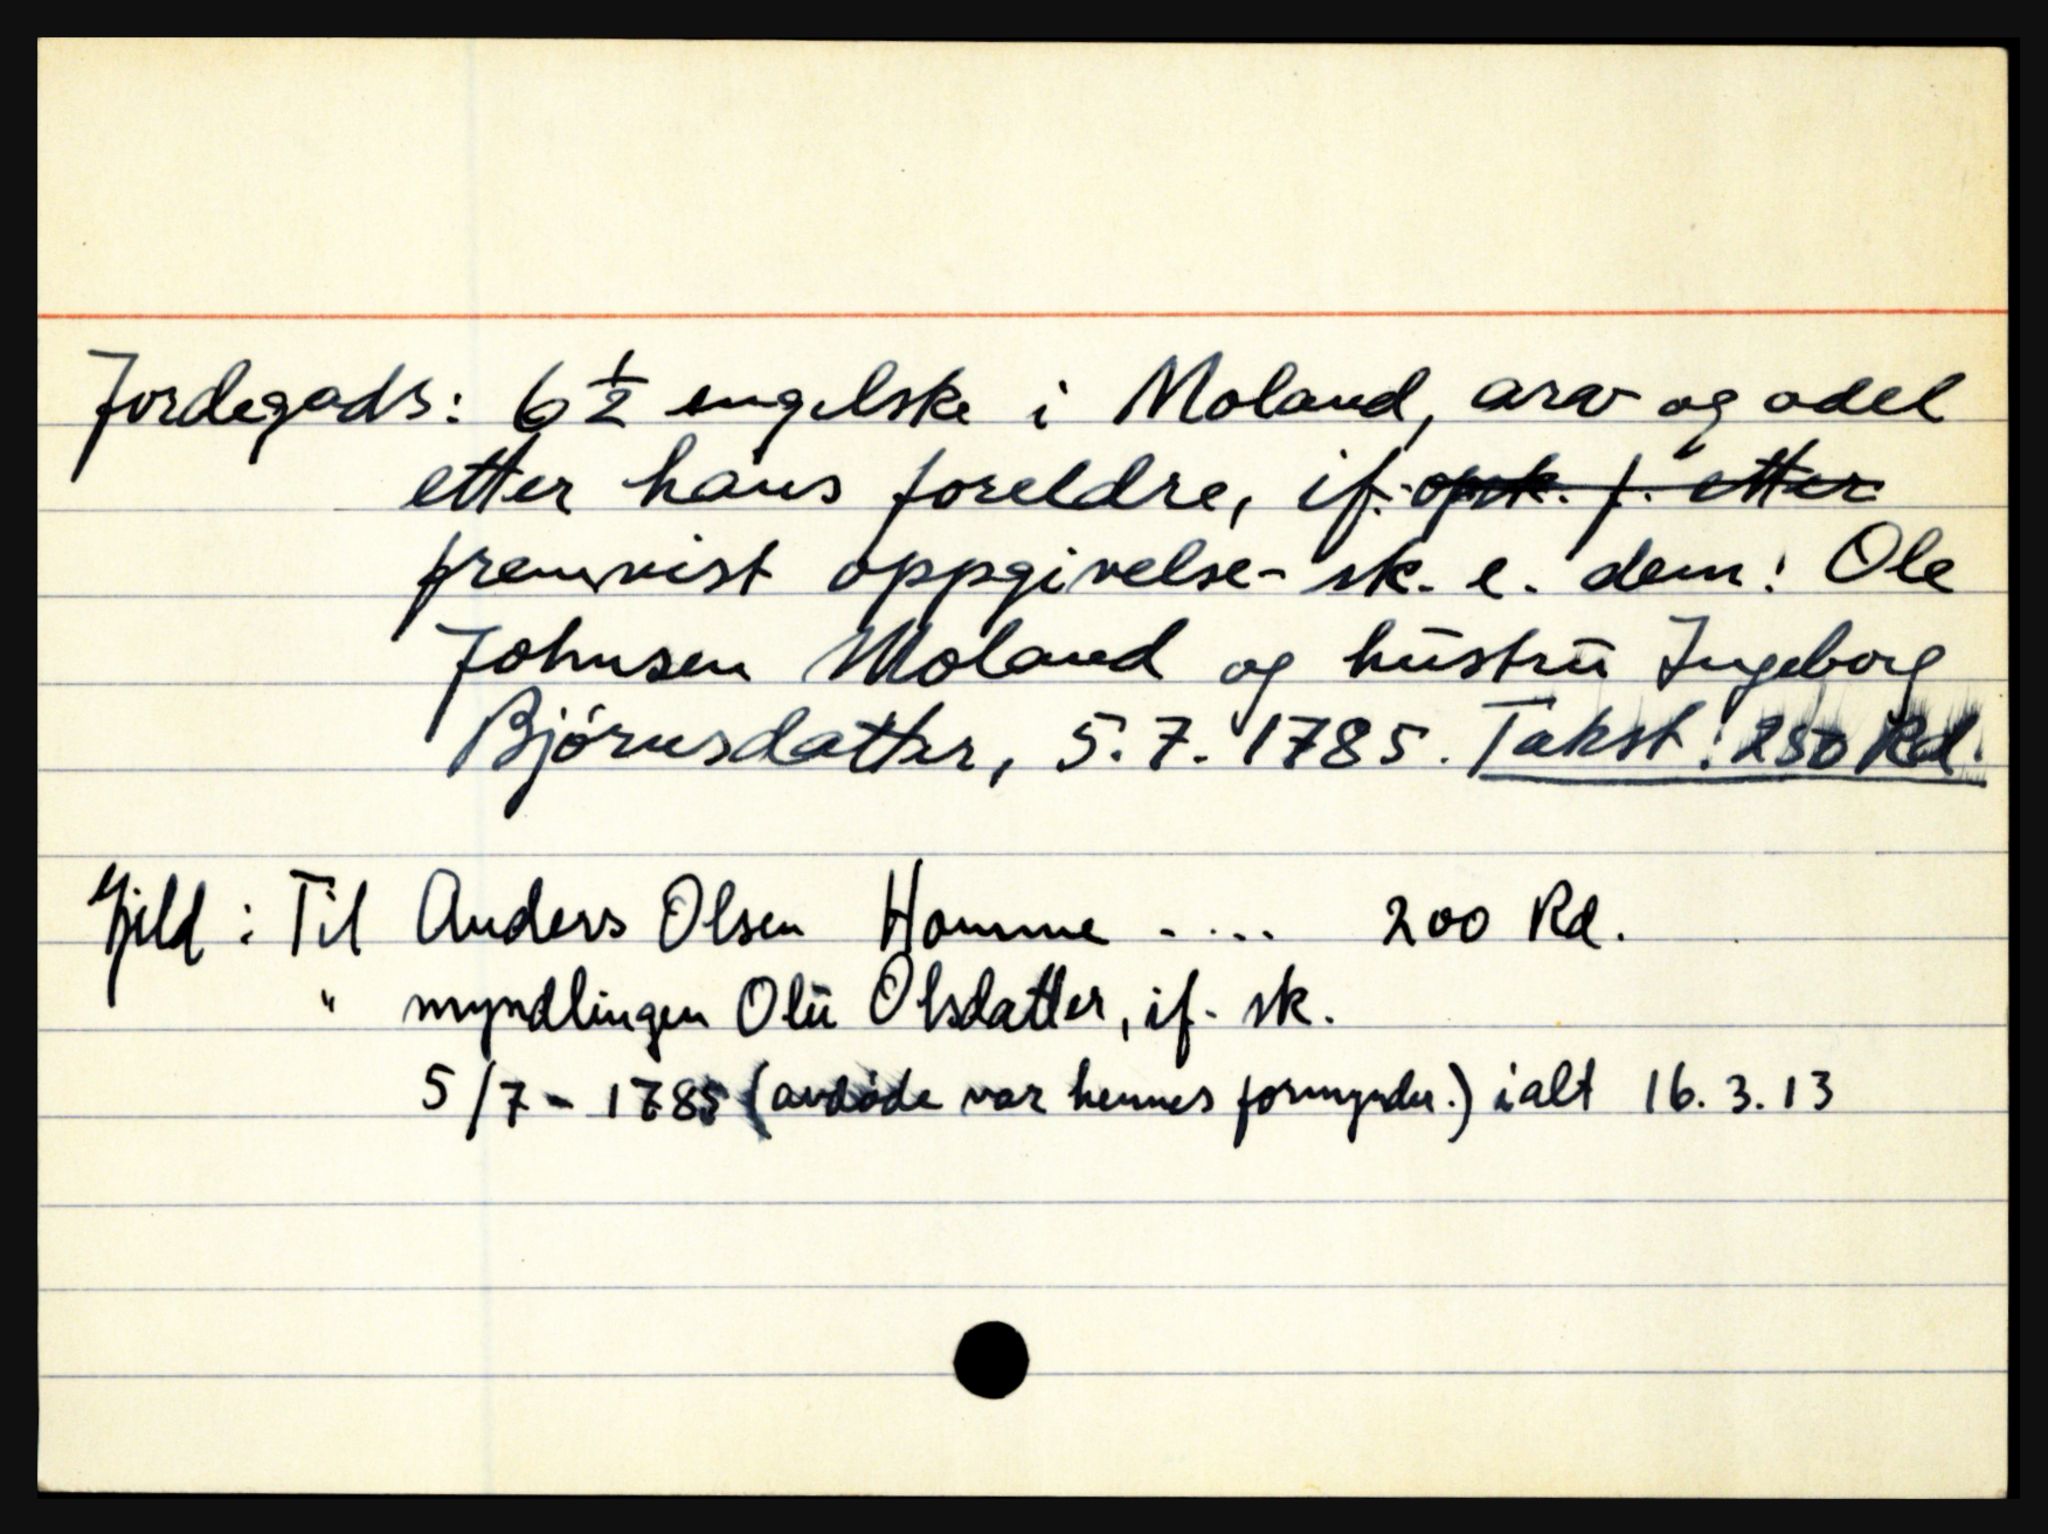 Jordegods: 6 1/2 engelske i Moland, arv og odel
etter hans foreldre, if. opsk. f. etter
fremvist oppgivelse-sk. e. dem: Ole
Johnsen Moland og hustru Ingeborg
Bjørnsdatter, 5.7.1785. Takst: 250 Rd.
Gjeld: Til Anders Olsen Homme .... 200 Rd.
" myndlingen Olu Olsdatter, if. sk.
5/7 - 1785 (avdøde var hennes formynder.) ialt 16.3.13